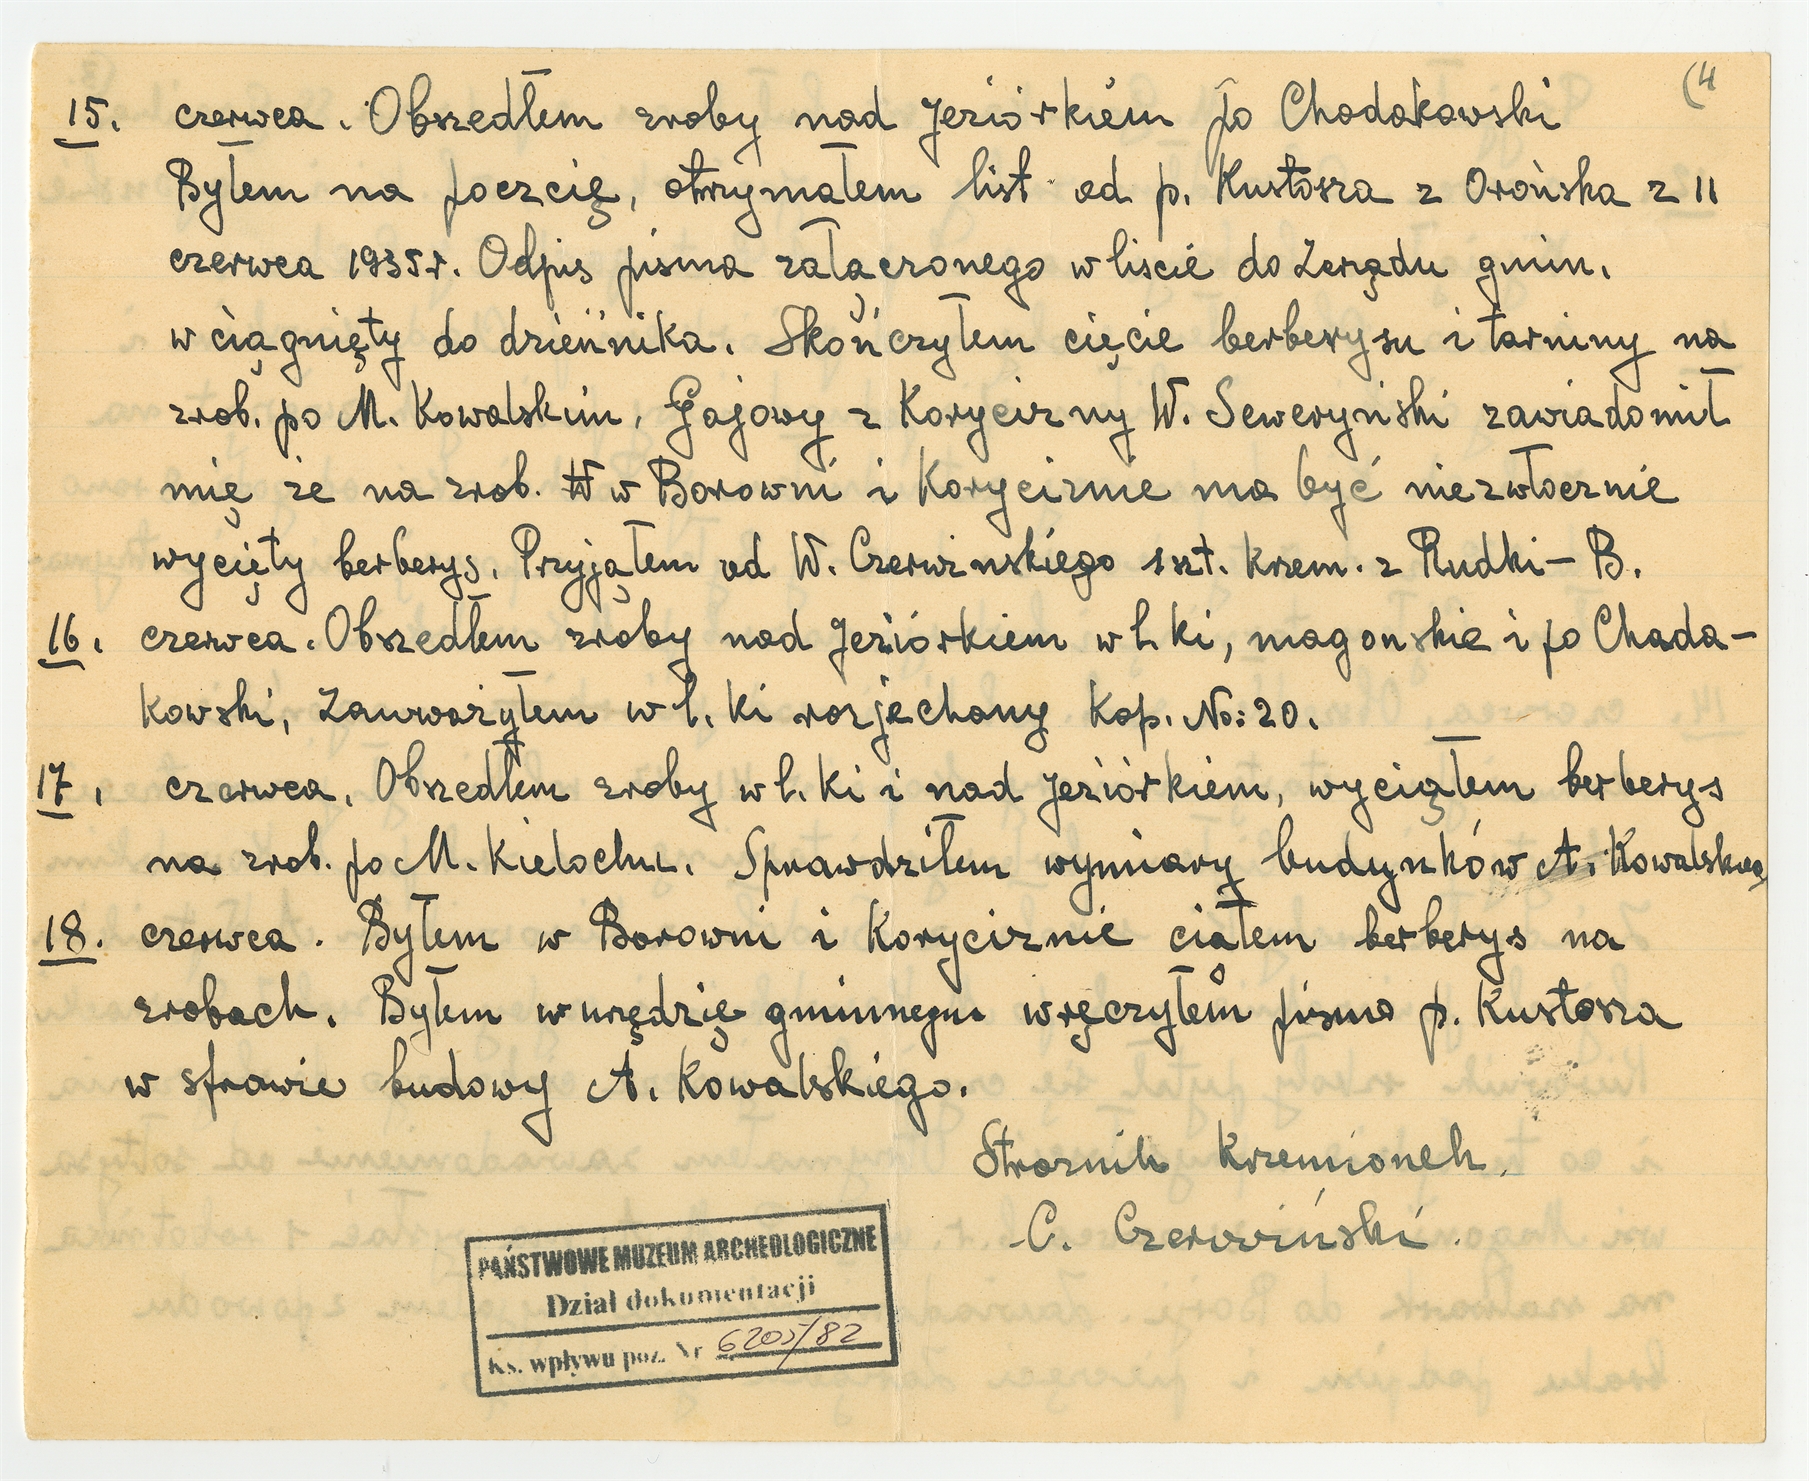 (4
15. czerwca. Obszedłem zroby nad Jeziórkiem po Chodakowski
Byłem na poczcię, otrzymałem list od p. Kustosza z Orońska z 11
czerwca 1935 r. Odpis pisma załączonego w liscie do Zarządu gmin.
wciągnięty do dziennika. Skończyłem cięcie berberysu i tarniny na
zrob. po M. Kowalskim. Gajowy z Korycizny W. Seweryński zawiadomił
mię że na zrob. w Borowni i Koryciznie ma być niezwłocznie
wycięty berberys. Przyjąłem od W. Czerwinskiego 1 szt. krzem. z Rudki – B.
16. czerwca. Obszedłem zroby nad Jeziórkiem w l. ki, magonskie i po Chada–
kowski, Zauważyłem w l. ki rozjechany Kop. No: 20.
17. czerwca. Obszedłem zroby w l. ki i nad Jeziórkiem, wyciąłem berberys
na zrob. po M. Kielochu. Sprawdziłem wymiary budynków A. Kowalskieg
18. czerwca. Byłem w Borowni i Koryciznie ciąłem berberys na
zrobach. Byłem w urzędzię gminnegu wręczyłem pismo p. Kustosza
w sprawie budowy A. Kowalskiego.
Straznik Krzemionek.
C. Czerwiński.
PAŃSTWOWE MUZEUM ARCHEOLOGICZNE
Dział dokumentacji
Ks. wpływu poz. Nr 6205/82